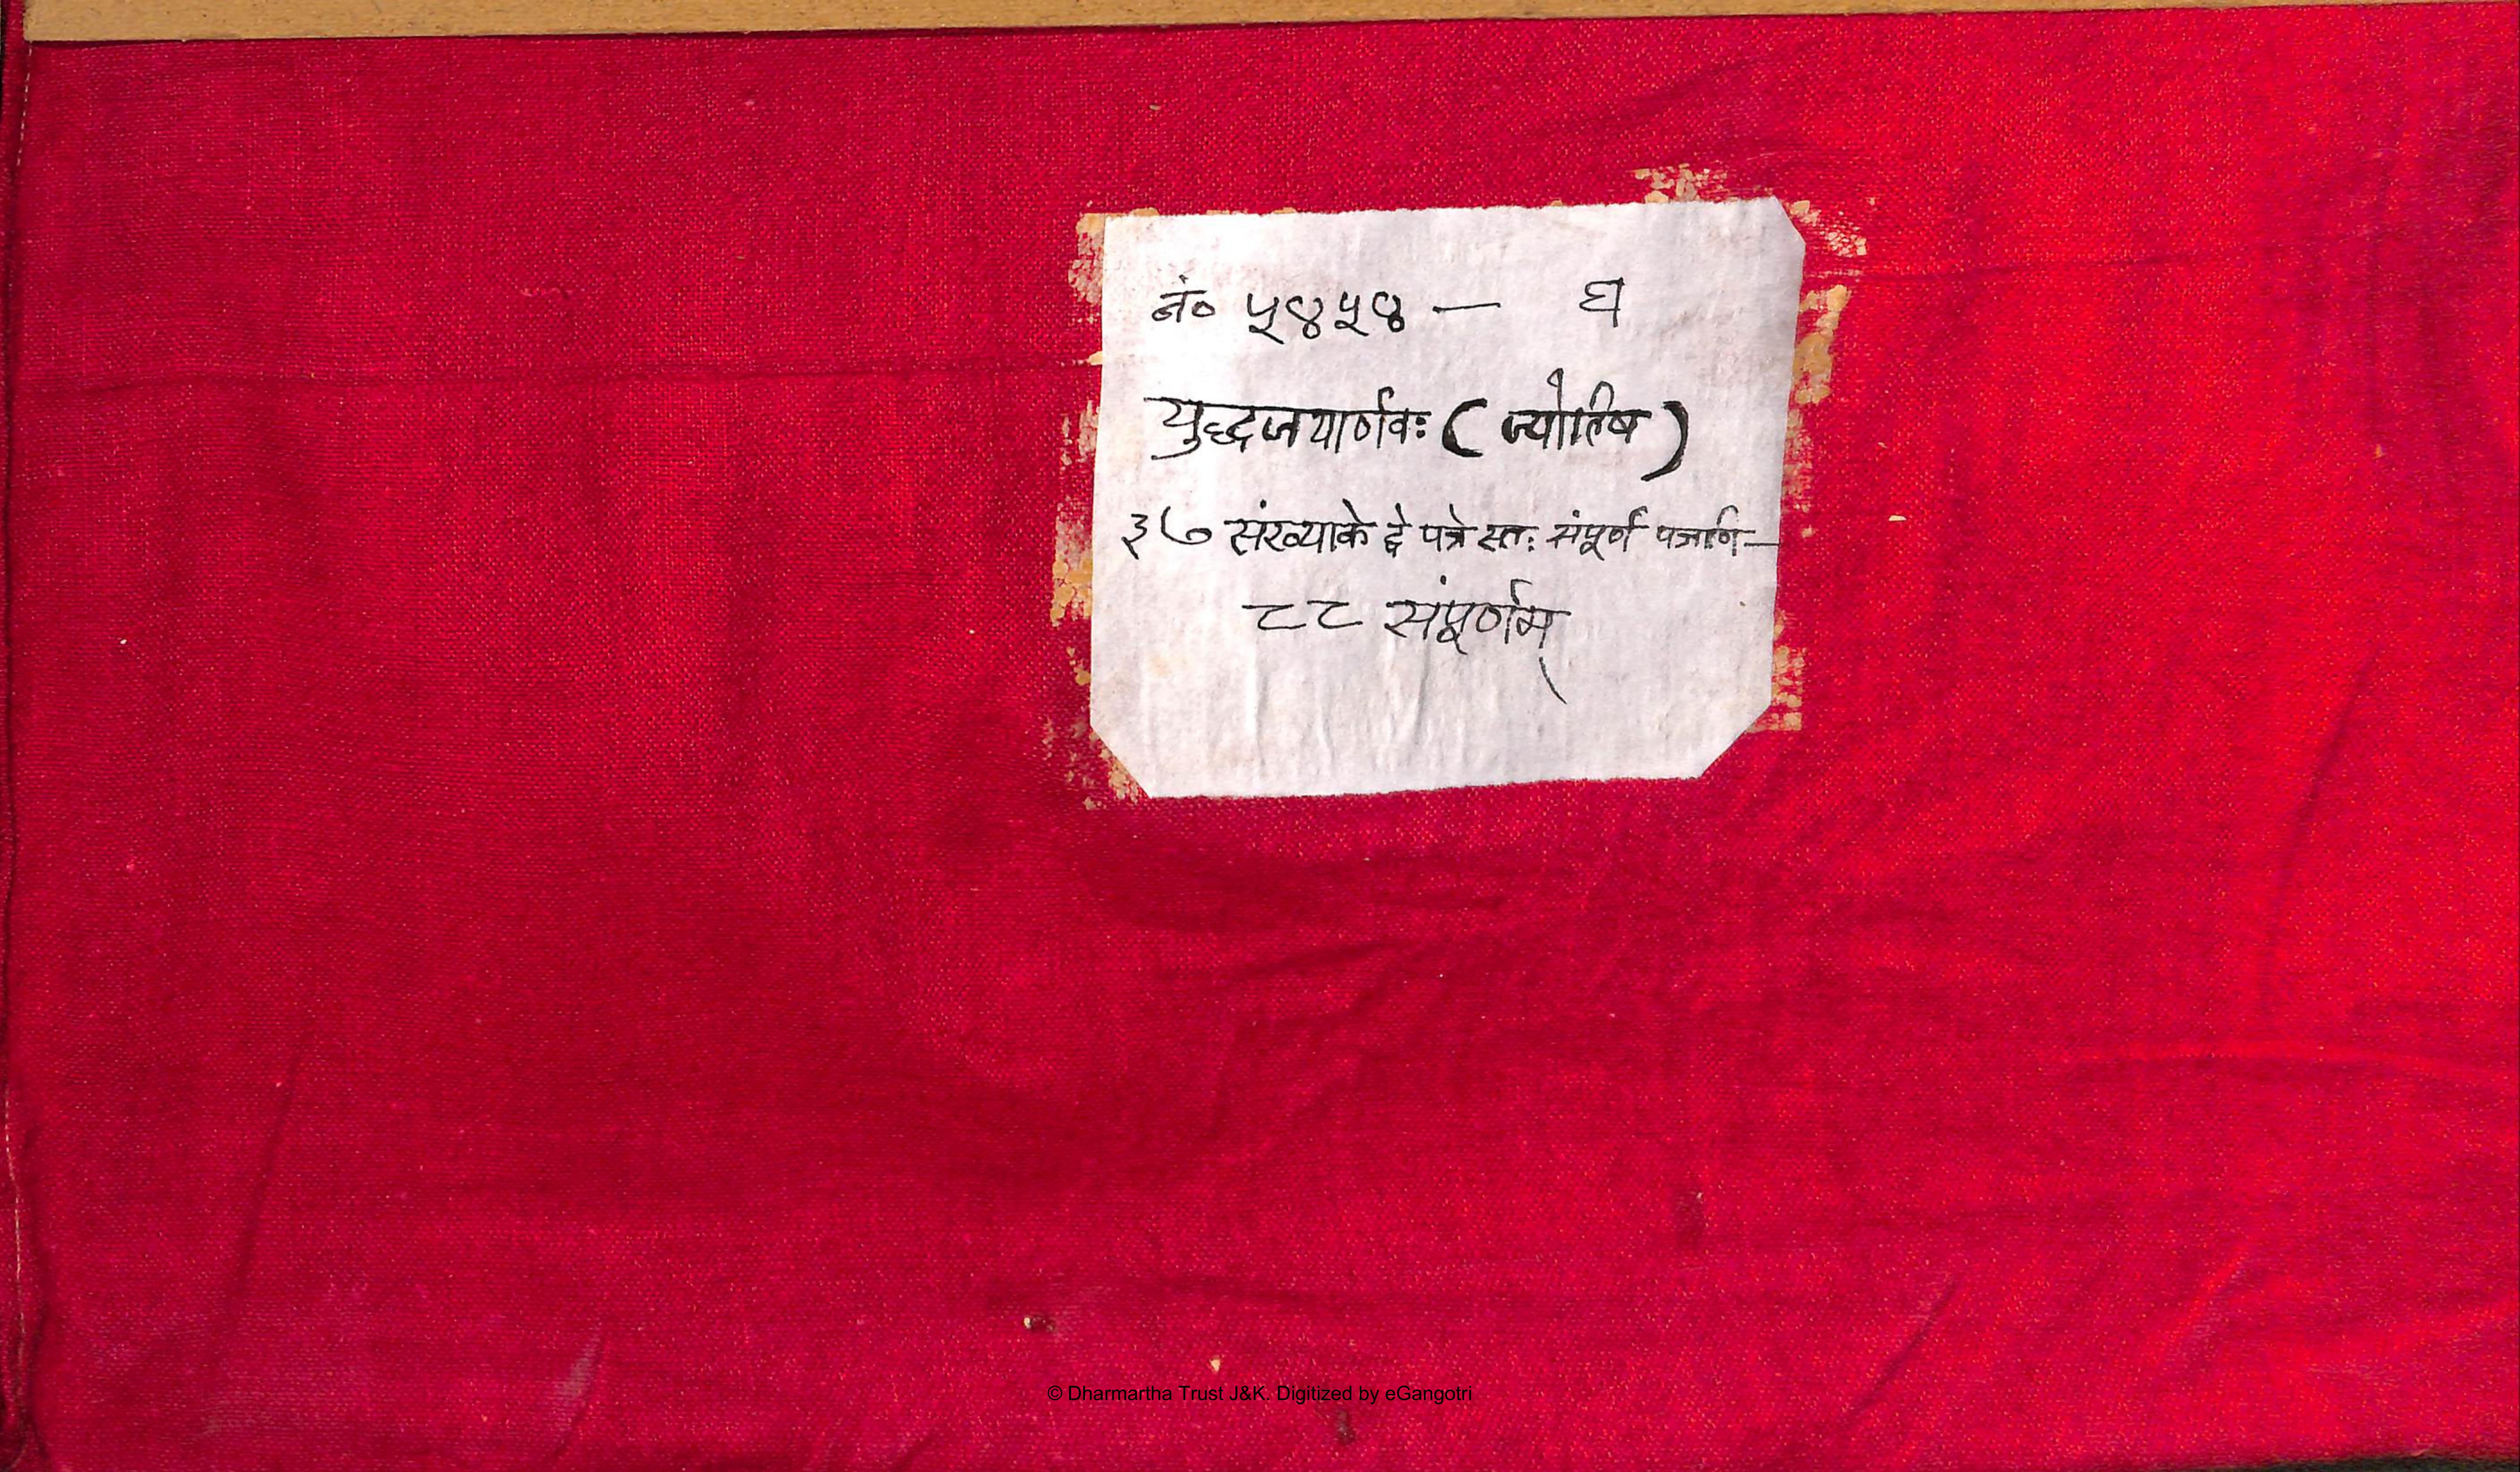 नं० ५४५४ — घ
युद्धजयार्णवः ( ज्योतिष )
३७ संख्याके द्वे पत्रे स्तः संपूर्ण पत्राणि —
८८ संपूर्णम्
© Dharmartha Trust J&K. Digitized by eGangotri